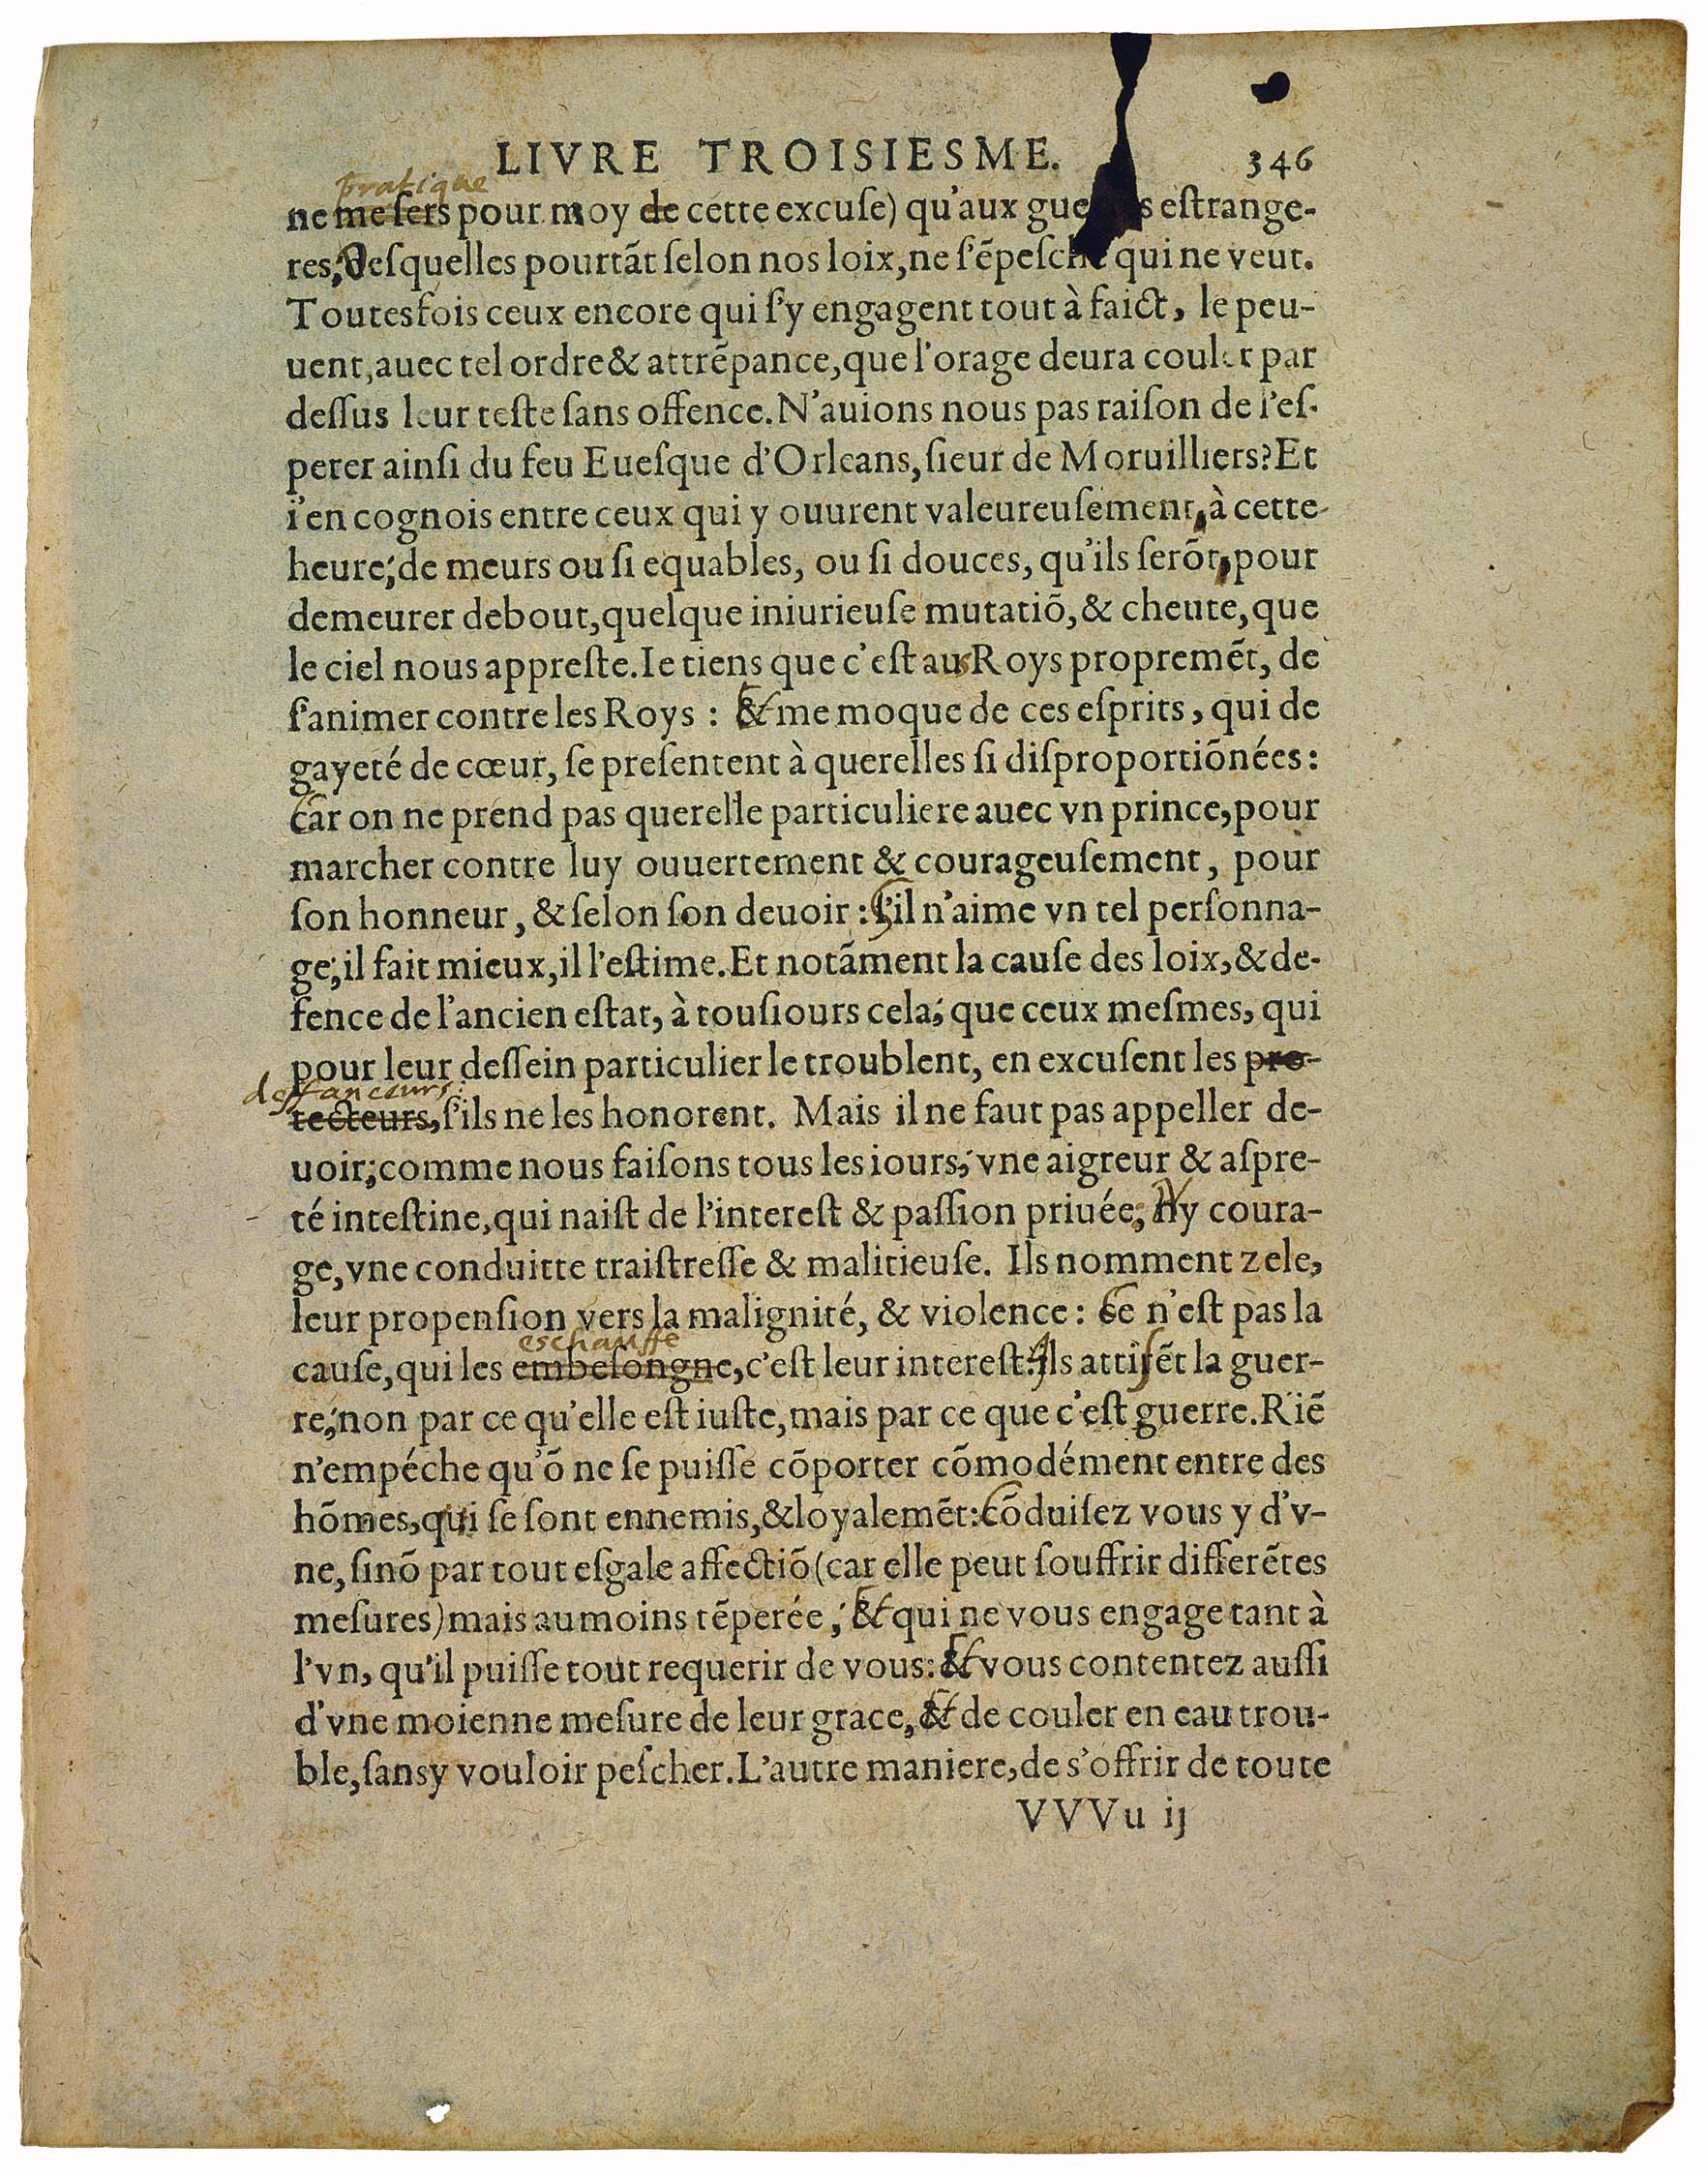 LIVRE TROISIESME. 346
pratique
ne me ſers pour moy de cette excuſe) qu'aux gue s eſtrange-
res, deſquelles pourtãt ſelon nos loix, ne ſ'ẽpeſche qui ne veut.
Toutesfois ceux encore qui ſ'y engagent tout à faict, le peu-
uent, auec tel ordre & attrẽpance, que l'orage deura couler par
deſſus leur teſte ſans offence. N'auions nous pas raiſon de l'eſ-
perer ainſi du feu Eueſque d'Orleans, ſieur de Moruilliers? Et
i'en cognois entre ceux qui y ouurent valeureuſement, à cette
heure; de meurs ou ſi equables, ou ſi douces, qu'ils ſerõt, pour
demeurer debout, quelque iniurieuſe mutatiõ, & cheute, que
le ciel nous appreſte. Ie tiens que c'eſt aus Roys propremẽt, de
ſ'animer contre les Roys : Et me moque de ces eſprits, qui de
gayeté de cœur, ſe preſentent à querelles ſi diſproportiõnées :
Car on ne prend pas querelle particuliere auec vn prince, pour
marcher contre luy ouuertement & courageuſement, pour
ſon honneur, & ſelon ſon deuoir : S'il n'aime vn tel perſonna-
ge; il fait mieux, il l'eſtime. Et notãment la cauſe des loix, & de-
fence de l'ancien eſtat, à touſiours cela; que ceux meſmes, qui
pour leur deſſein particulier le troublent, en excuſent les pro-
deffanceurs:
tecteurs, ſ'ils ne les honorent. Mais il ne faut pas appeller de-
uoir; comme nous faiſons tous les iours; vne aigreur & aſpre-
té inteſtine, qui naiſt de l'intereſt & paſſion priuée; Ny coura-
ge, vne conduitte traiſtreſſe & malitieuſe. Ils nomment zele,
leur propenſion vers la malignité, & violence : Ce n'eſt pas la
eschauffe
cauſe, qui les embeſongne, c'eſt leur intereſt: Ils attiſẽt la guer-
re; non par ce qu'elle eſt iuſte, mais par ce que c'eſt guerre. Riẽ
n'empéche qu'õ ne ſe puiſſe cõporter cõmodément entre des
hõmes, qui ſe ſont ennemis, & loyalemẽt: Cõduiſez vous y d'v-
ne, ſinõ par tout eſgale affectiõ (car elle peut ſouffrir differẽtes
meſures) mais au moins tẽperée; Et qui ne vous engage tant à
l'vn, qu'il puiſſe tout requerir de vous: Et vous contentez auſſi
d'vne moienne meſure de leur grace, Et de couler en eau trou-
ble, ſans y vouloir peſcher. L'autre maniere, de s'offrir de toute
VVVu ij